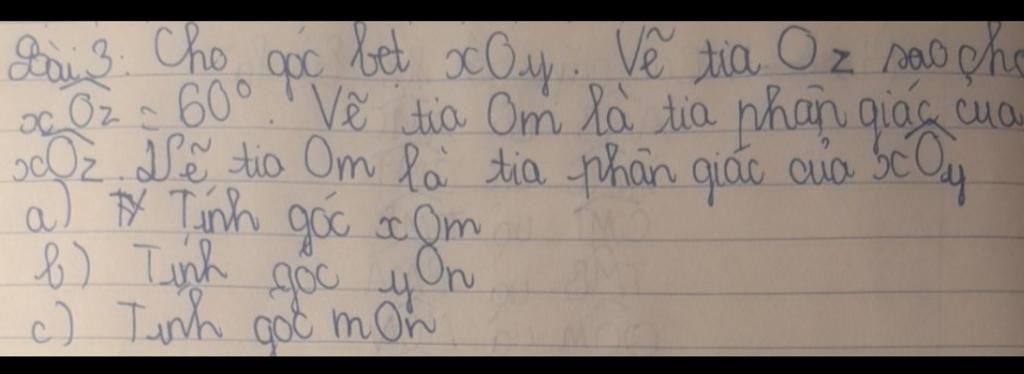 Bài 3: Cho góc bẹt xOy. Vẽ tia Oz sao cho
xOz = 60°. Vẽ tia Om là tia phân giác của
xOz. Vẽ tia Om là tia phân giác của xOy
a) Tính góc xOm
b) Tính góc yOn
c) Tính góc mOn